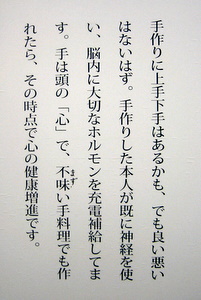 手作りに上手下手はあるかも、でも良い悪い
はないはず。手作りした本人が既に神経を使
い、脳内に大切なホルモンを充電補給してま
す。手は頭の「心」で、不味い手料理でも作
まず
れたら、その時点で心の健康増進です。